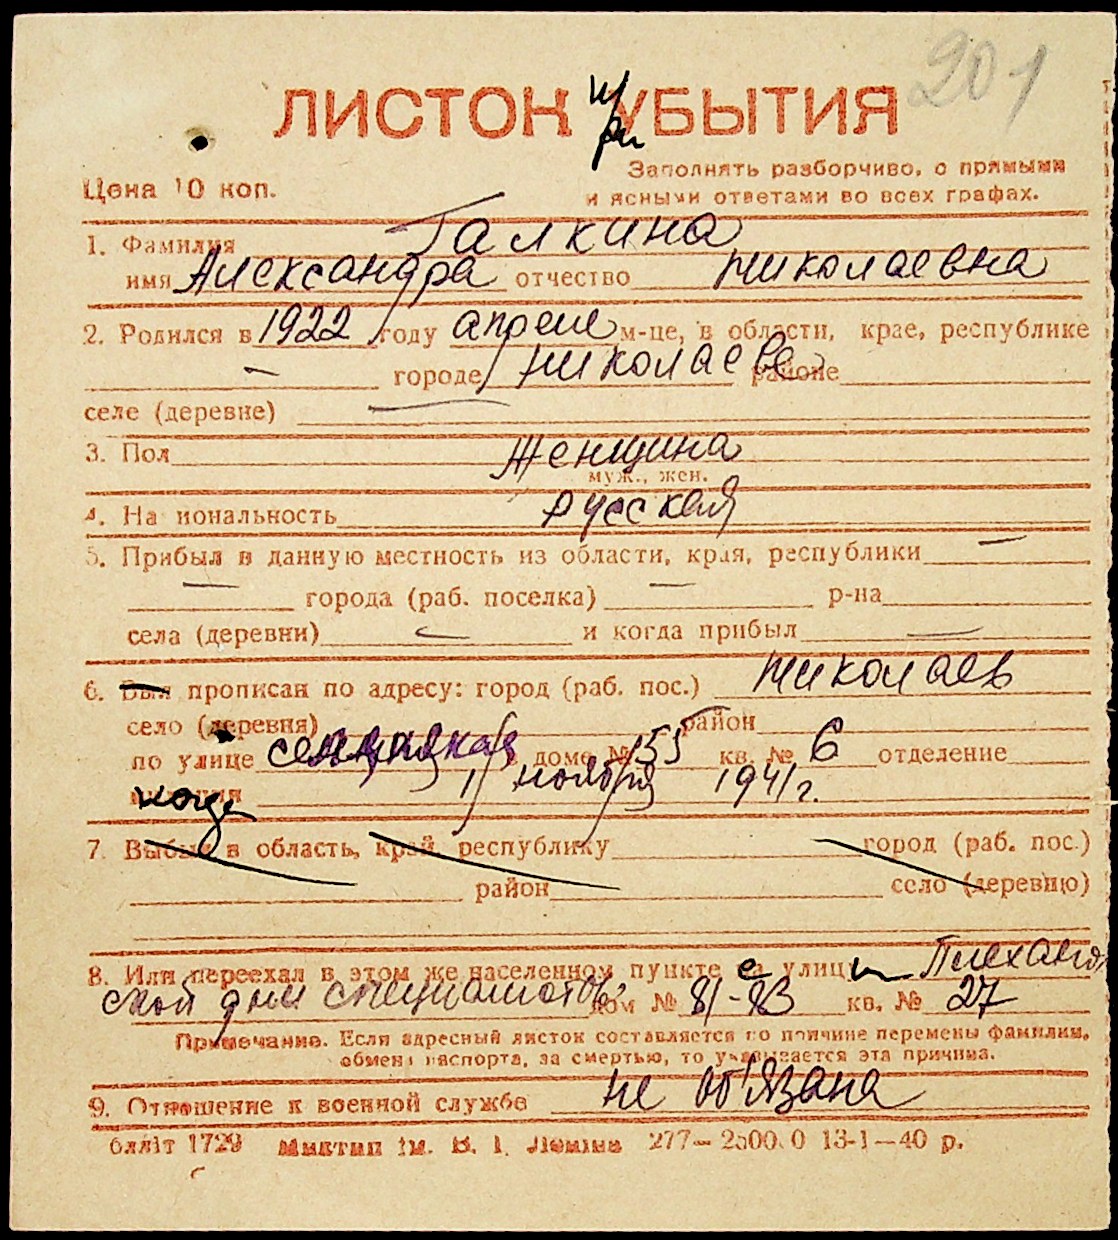 201
ЛИСТОК УБЫТИЯ
при
Цена 10 коп.
Заполнять разборчиво, с прямыми
и ясными ответами во всех графах.
1. Фамилия Галкина
имя Александра отчество Николаевна
2. Родился в 1922 году апреле м-це, в области, крае, республике
— городе Николаеве районе
селе (деревне) —
3. Пол Женщина
муж., жен.
4. Национальность русская
5. Прибыл в данную местность из области, края, республики —
— города (раб. поселка) — р-на
села (деревни) — и когда прибыл —
6. Был прописан по адресу: город (раб. пос.) Николаев
село (деревня) район
по улице дом № 155 кв. № 6 отделение
когда 1/ ноября 1941 г.
7. Выбыл в область, край, республику город (раб. пос.)
район село (деревню)
8. Или переехал в этом же населенном пункте с улицы Плеханов
ской дом специалистов дом № 81-83 кв. № 27
Примечание. Если адресный листок составляется по причине перемены фамилии,
обмена паспорта, за смертью, то указывается эта причина.
9. Отношение к военной службе не об'язана
блліт 1729 Миктип ім. В. І. Леніна 277— 250000 13-1—40 р.